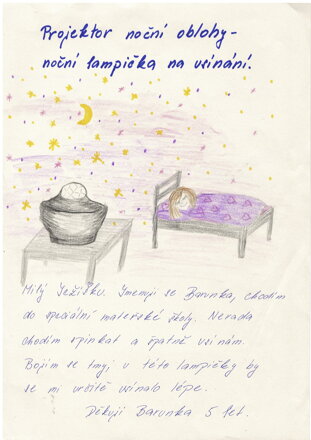 Projektor noční oblohy -
noční lampička na usínání.
Milý Ježíšku. Jmenuji se Barunka, chodím
do speciální mateřské školy. Nerada
chodím spinkat a špatně usínám.
Bojím se tmy, u této lampičky by
se mi určitě usínalo lépe.
Děkuji Barunka 5 let.